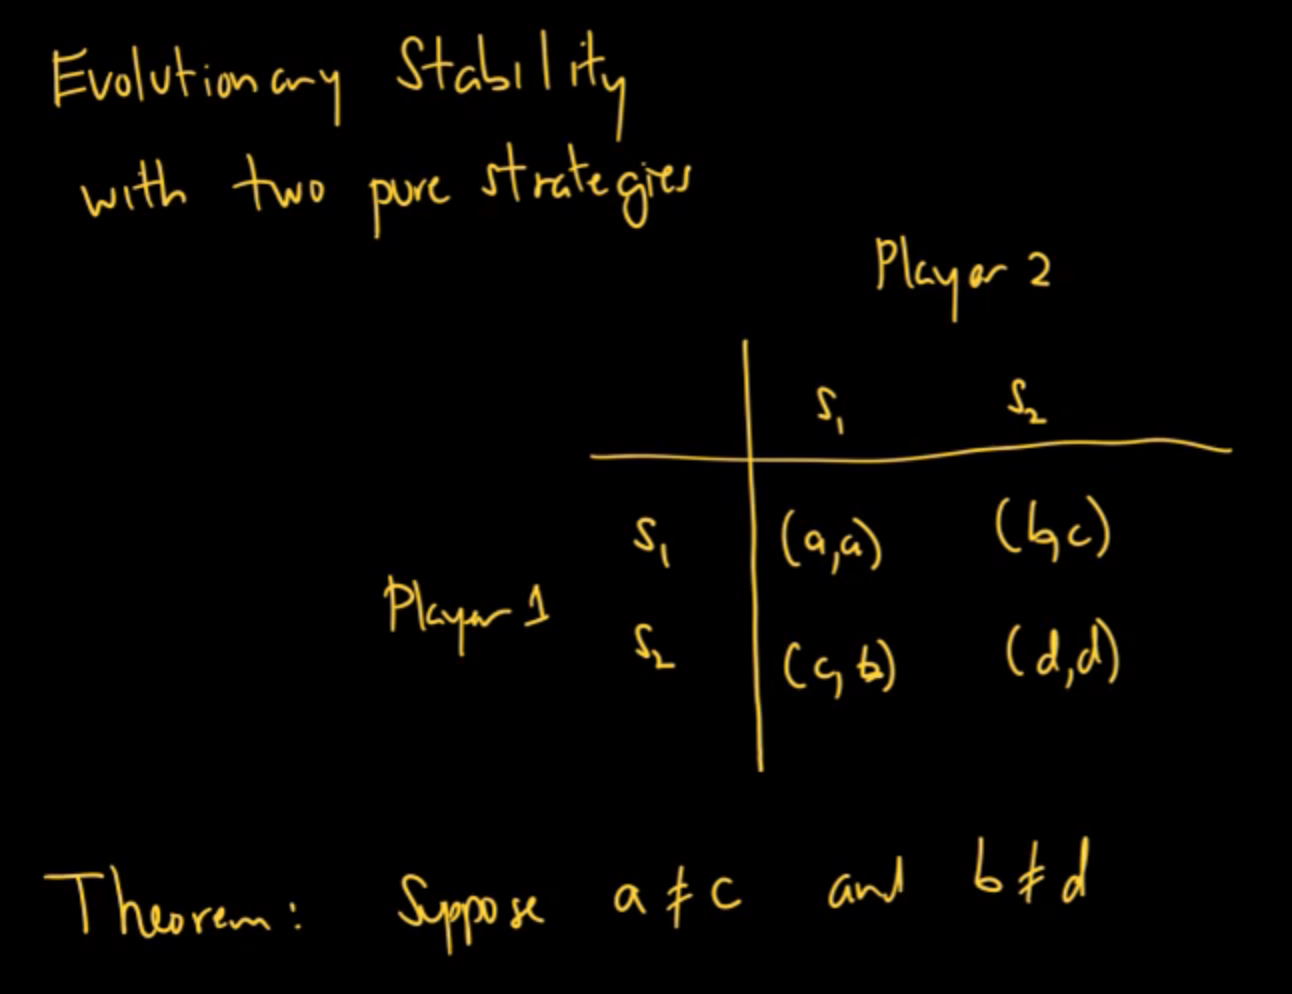 Evolutionary Stability
with two pure strategies
Player 2
S₁ S₂
S₁ (a,a) (b,c)
Player 1
S₂ (c,b) (d,d)
Theorem: Suppose a ≠ c and b ≠ d